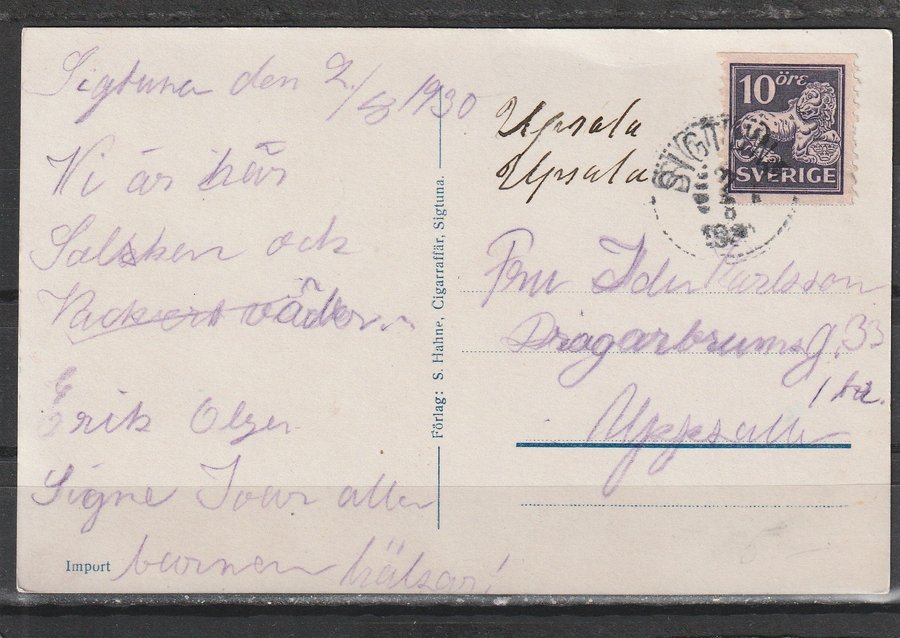 Sigtuna den 2/8 1930
Vi är här
Solsken och
Vackert väder
Erik Olga
Signe Ivar alla
barnen hälsar!
Import
Förlag: S. Hahne, Cigarraffär, Sigtuna.
Upsala
Upsala
10 öre
SVERIGE
SIGTUNA
Fru Ida Karlsson
Dragarbrunsg. 33
1 tr.
Uppsala